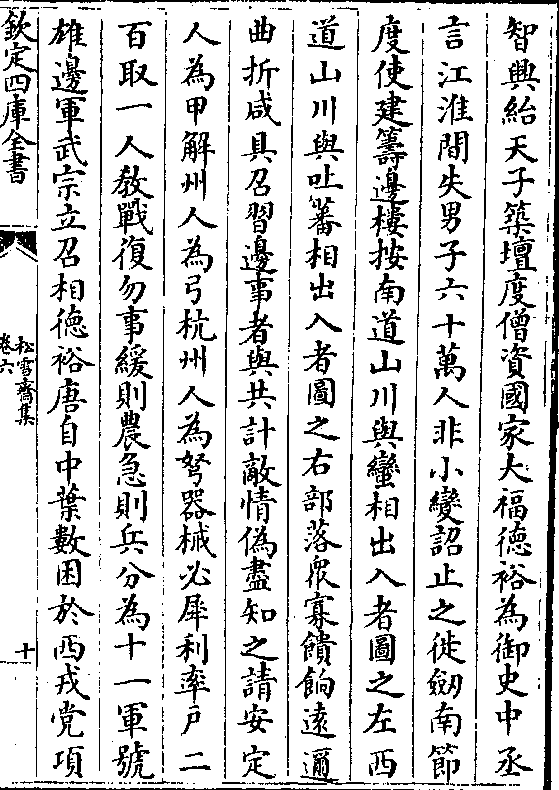 智興紿天子築壇度僧資國家大福德裕為御史中丞
言江淮間失男子六十萬人非小變詔止之徙劒南節
度使建籌邊樓按南道山川與蠻相出入者圖之左西
道山川與吐蕃相出入者圖之右部落衆寡饋餉遠邇
曲折咸具召習邊事者與共計敵情偽盡知之請安定
人為甲解州人為弓杭州人為弩器械必犀利率戸二
百取一人教戰復勿事緩則農急則兵分為十一軍號
雄邊軍武宗立召相德裕唐自中葉數困於西戎党項
欽定四庫全書
松雪齋集
卷六
十